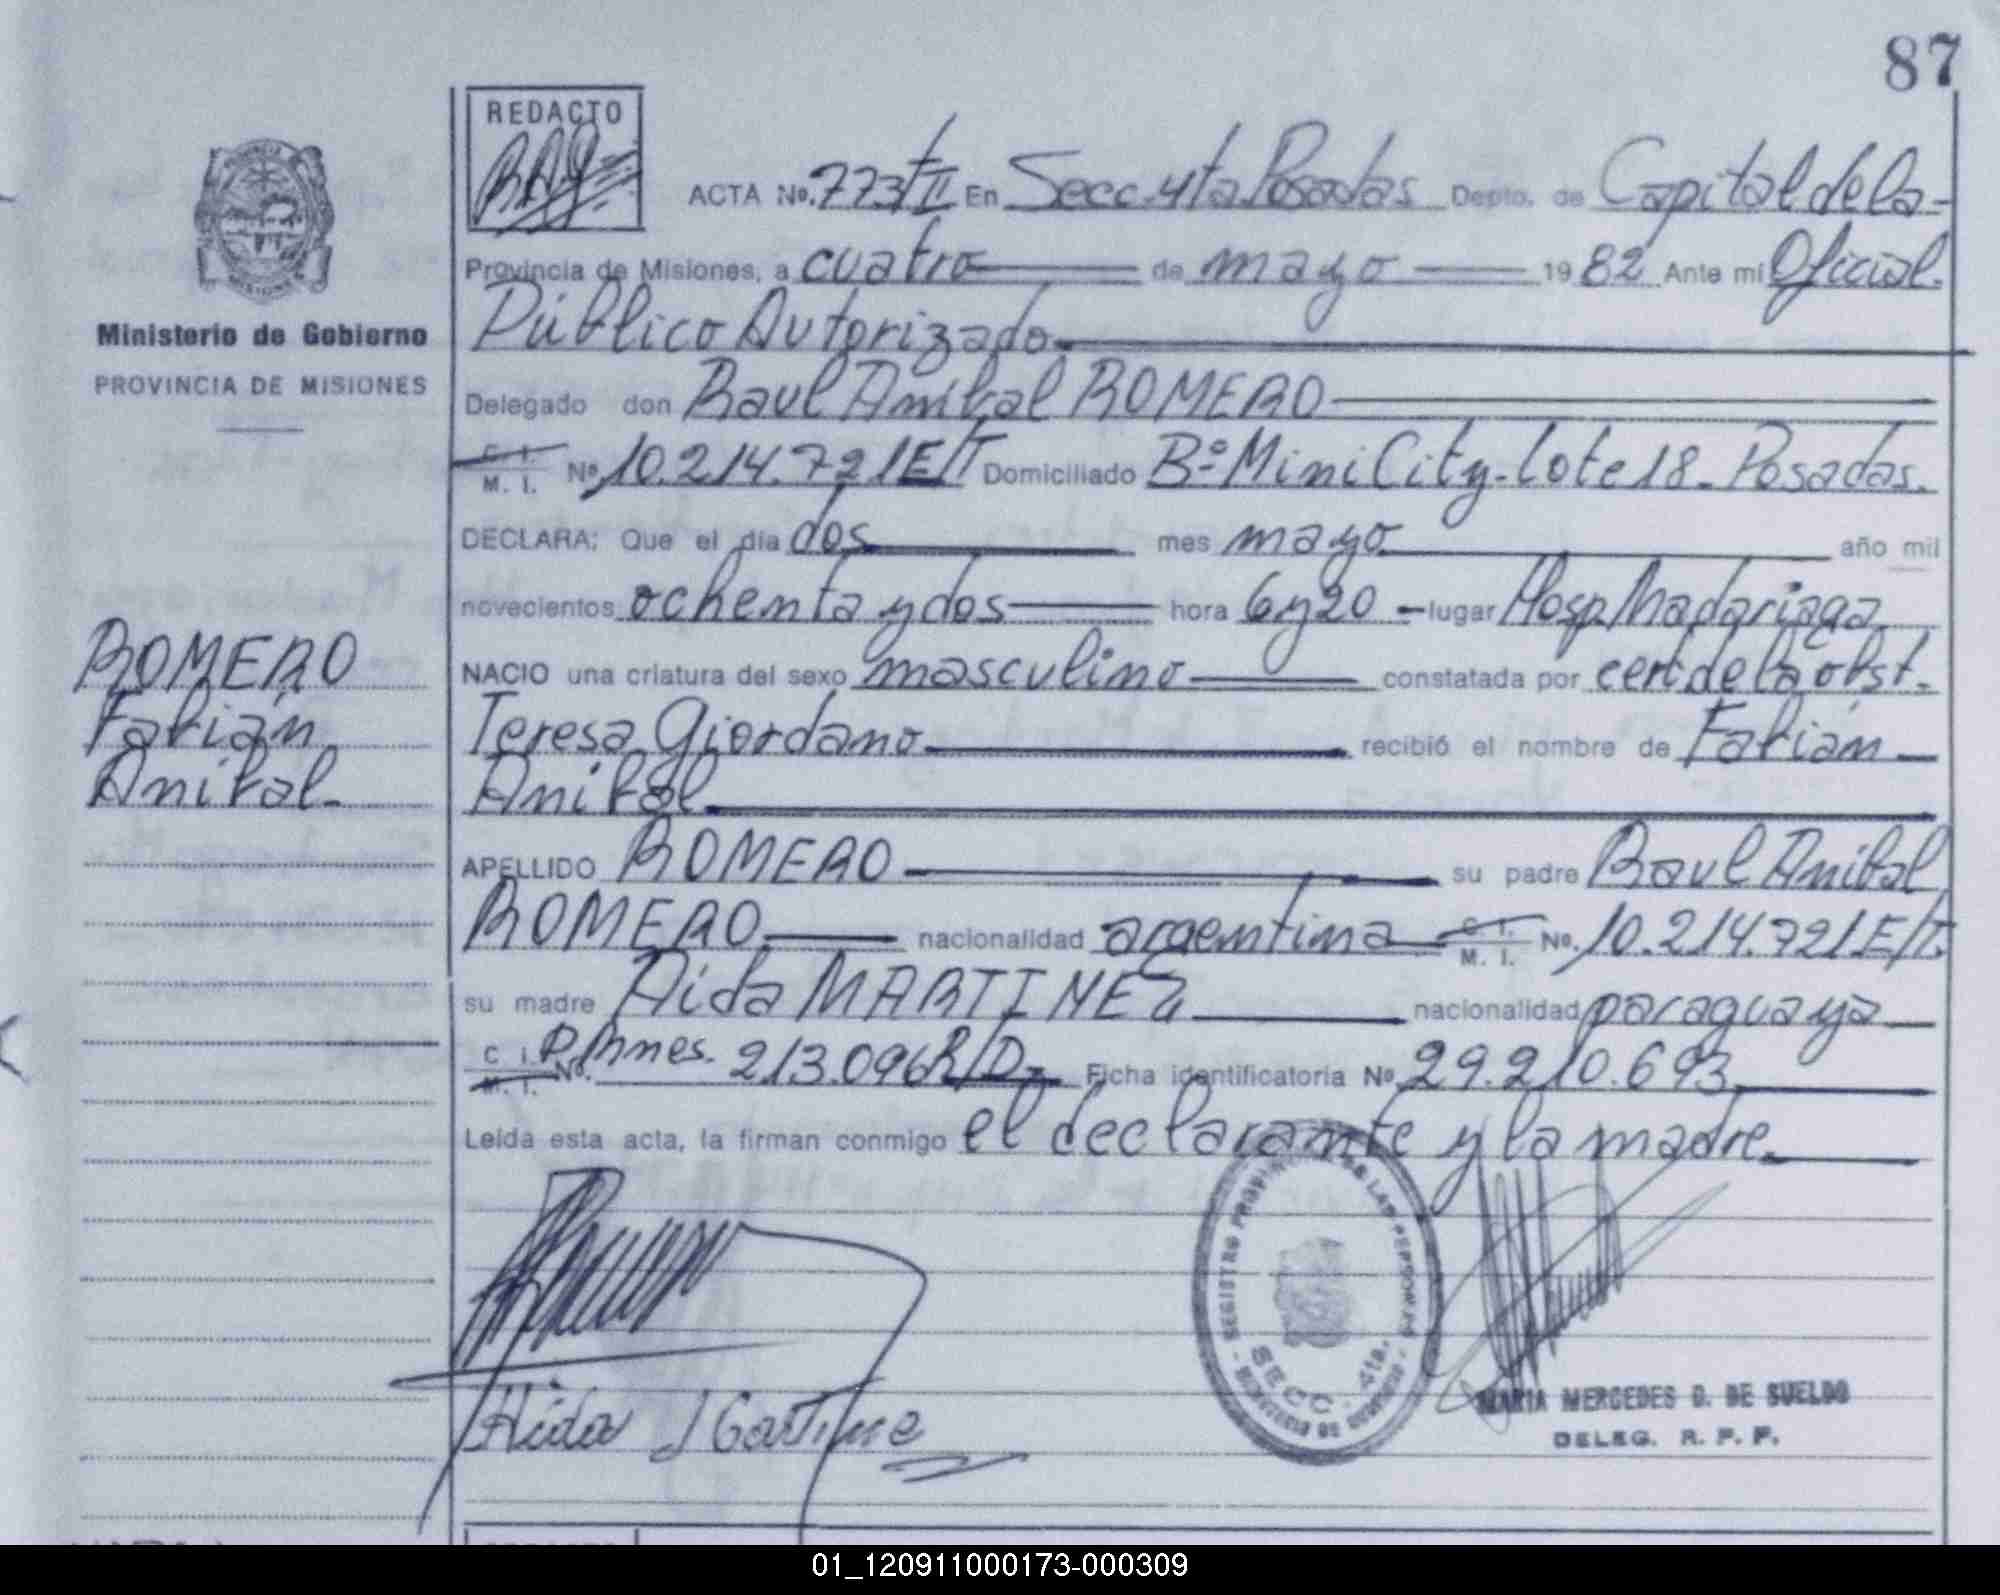 87
REDACTO
ACTA Nº. 773/TII En Secc. 4ta Posadas Depto. de Capital de la-
Provincia de Misiones, a cuatro de mayo 1982 Ante mi Oficial.
Público Autorizado.
Delegado don Raul Anibal ROMERO
C. I. M. I. Nº 10.214.721 E/T Domiciliado Bº Mini City-lote 18- Posadas.
DECLARA: Que el día dos mes mayo año mil
novecientos ochenta y dos hora 6 y 20 - lugar Hosp. Madariaga.
NACIO una criatura del sexo masculino constatada por cert de la obst.
Teresa Giordano. recibió el nombre de Fabián
Anibal.
APELLIDO ROMERO su padre Raul Anibal
ROMERO. nacionalidad argentina C. I. M. I. Nº. 10.214.721 E/T.
su madre Aida MARTINEZ nacionalidad paraguaya
C. I. M. I. Nº. P. Mnes. 213.096 R/D- Ficha identificatoria Nº 29.210.693
Leída esta acta, la firman conmigo el declarante y la madre.
Ministerio de Gobierno
PROVINCIA DE MISIONES
ROMERO
Fabián
Anibal-
PROVINCIA
MISIONES
REGISTRO PROVINCIAL DE LAS PERSONAS
SECC. 4ta.
MINISTERIO DE GOBIERNO
Aida
MARIA MERCEDES D. DE SUELDO
DELEG. R. P. P.
01_120911000173-000309